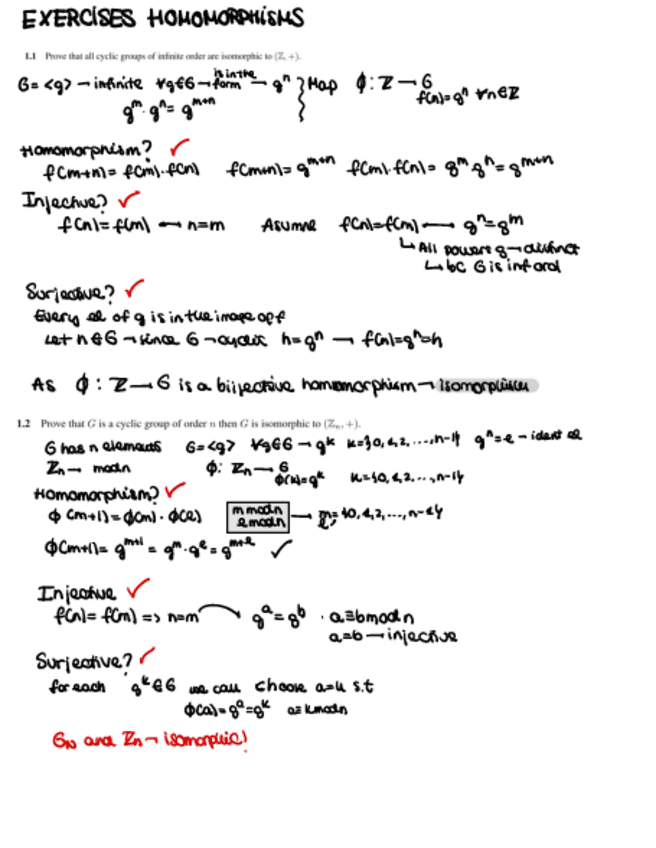 EXERCISES HOMOMORPHISMS
1.1 Prove that all cyclic groups of infinite order are isomorphic to (ℤ, +).
G= <g> → infinite ∀g∈G → is in the form → gⁿ } Map ϕ: ℤ → G
f(n)=gⁿ ∀n∈ℤ
gᵐ· gⁿ= gᵐ⁺ⁿ
Homomorphism? ✓
f(m+n)= f(m)·f(n) f(m+n)= gᵐ⁺ⁿ f(m)·f(n)= gᵐ·gⁿ= gᵐ⁺ⁿ
Injective? ✓
f(n)= f(m) → n=m Asume f(n)=f(m) → gⁿ=gᵐ
↳ All powers g → distinct
↳ bc G is inf ord
Surjective? ✓
Every el of g is in the image of f
Let h∈G → since G → cyclic h=gⁿ → f(n)=gⁿ=h
As ϕ: ℤ → G is a biijective homomorphism → isomorphism
1.2 Prove that G is a cyclic group of order n then G is isomorphic to (ℤₙ, +).
G has n elements G=<g> ∀g∈G → gᵏ k={0,1,2,...,n-1} gⁿ=e → ident el
ℤn → modn ϕ: ℤn → G
ϕ(k)=gᵏ k={0,1,2,...,n-1}
Homomorphism? ✓
ϕ(m+l)=ϕ(m)·ϕ(l) m modn → {0,1,2,...,n-1}
l modn
ϕ(m+l)= gᵐ⁺ˡ = gᵐ·gˡ= gᵐ⁺ˡ ✓
Injective ✓
f(n)= f(m) => n=m gᵃ=gᵇ · a≡bmodn
a=b → injective
Surjective? ✓
for each gᵏ∈G we can choose a=k s.t
ϕ(a)=gᵃ=gᵏ a≡kmodn
and ℤn → isomorphic!